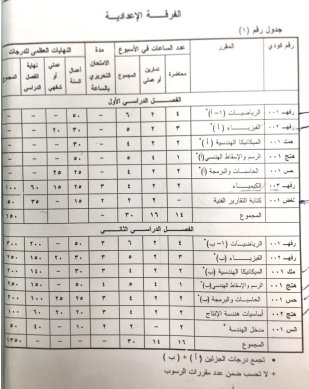 الفرقة الإعدادية
جدول رقم (١)
رقم كودي المقرر عدد الساعات في الأسبوع مدة الامتحان التحريري بالساعة النهايات العظمى للدرجات
محاضرة تمارين أو عملي المجموع أعمال السنة عملي أو شفهي نهاية الفصل الدراسي المجموع
الفصل الدراسي الأول
رفهـ ٠٠١ الرياضيات (١-أ)* ٤ ٢ ٦ – ٥٠ – – –
رفهـ ٠٠٢ الفيزياء (أ)* ٣ ٢ ٥ – ٣٠ ٢٠ – –
همك ٠٠١ الميكانيكا الهندسية (أ)* ٢ ٢ ٤ – ٣٠ – – –
هتج ٠٠١ الرسم والإسقاط الهندسي (أ)* ١ ٤ ٥ – ٥٠ – – –
حس ٠٠١ الحاسبات والبرمجة (أ)* ٢ ٢ ٤ – ٢٥ ٢٥ – –
رفهـ ٠٠٣ الكيمياء ٢ ٢ ٤ ٣ ٢٥ ١٥ ٦٠ ١٠٠
٠٠١ كتابة التقارير الفنية – ٢ ٢ ٢ ١٥ – ٣٥ ٥٠
المجموع ١٤ ١٦ ٣٠ ١٥٠
الفصل الدراسي الثاني
رفهـ ٠٠١ الرياضيات (١-ب)* ٤ ٢ ٦ ٣ ٥٠ – ٢٠٠ ٣٠٠
رفهـ ٠٠٢ الفيزياء (ب)* ٣ ٢ ٥ ٣ ٣٠ ٢٠ ١٥٠ ٢٥٠
٠٠١ الميكانيكا الهندسية (ب)* ٢ ٢ ٤ ٣ ٣٠ – ١٤٠ ٢٠٠
هتج ٠٠١ الرسم والإسقاط الهندسي (ب)* ١ ٤ ٥ ٤ ٥٠ – ١٠٠ ٢٠٠
حس ٠٠١ الحاسبات والبرمجة (ب)* ٢ ٢ ٤ ٣ ٢٥ ٢٥ ١٠٠ ٢٠٠
هتج ٠٠٢ أساسيات هندسة الإنتاج ٢ ٢ ٤ ٣ ٢٠ ٢٠ ٦٠ ١٠٠
٠٠١ مدخل الهندسة + ٢ – ٢ ٢ ١٠ – ٤٠ ٥٠
المجموع ١٦ ١٤ ٣٠ ١٣٥٠
• تجمع درجات الجزئين (أ) + (ب)
+ لا تحسب ضمن عدد مقررات الرسوب